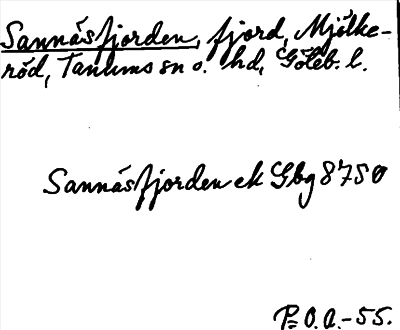 Sannäsfjorden, fjord, Mjölke-
röd, Tanums sn o. hd, Göteb. l.
Sannäsfjorden ek Gbg 8750
P=O.A.-55.